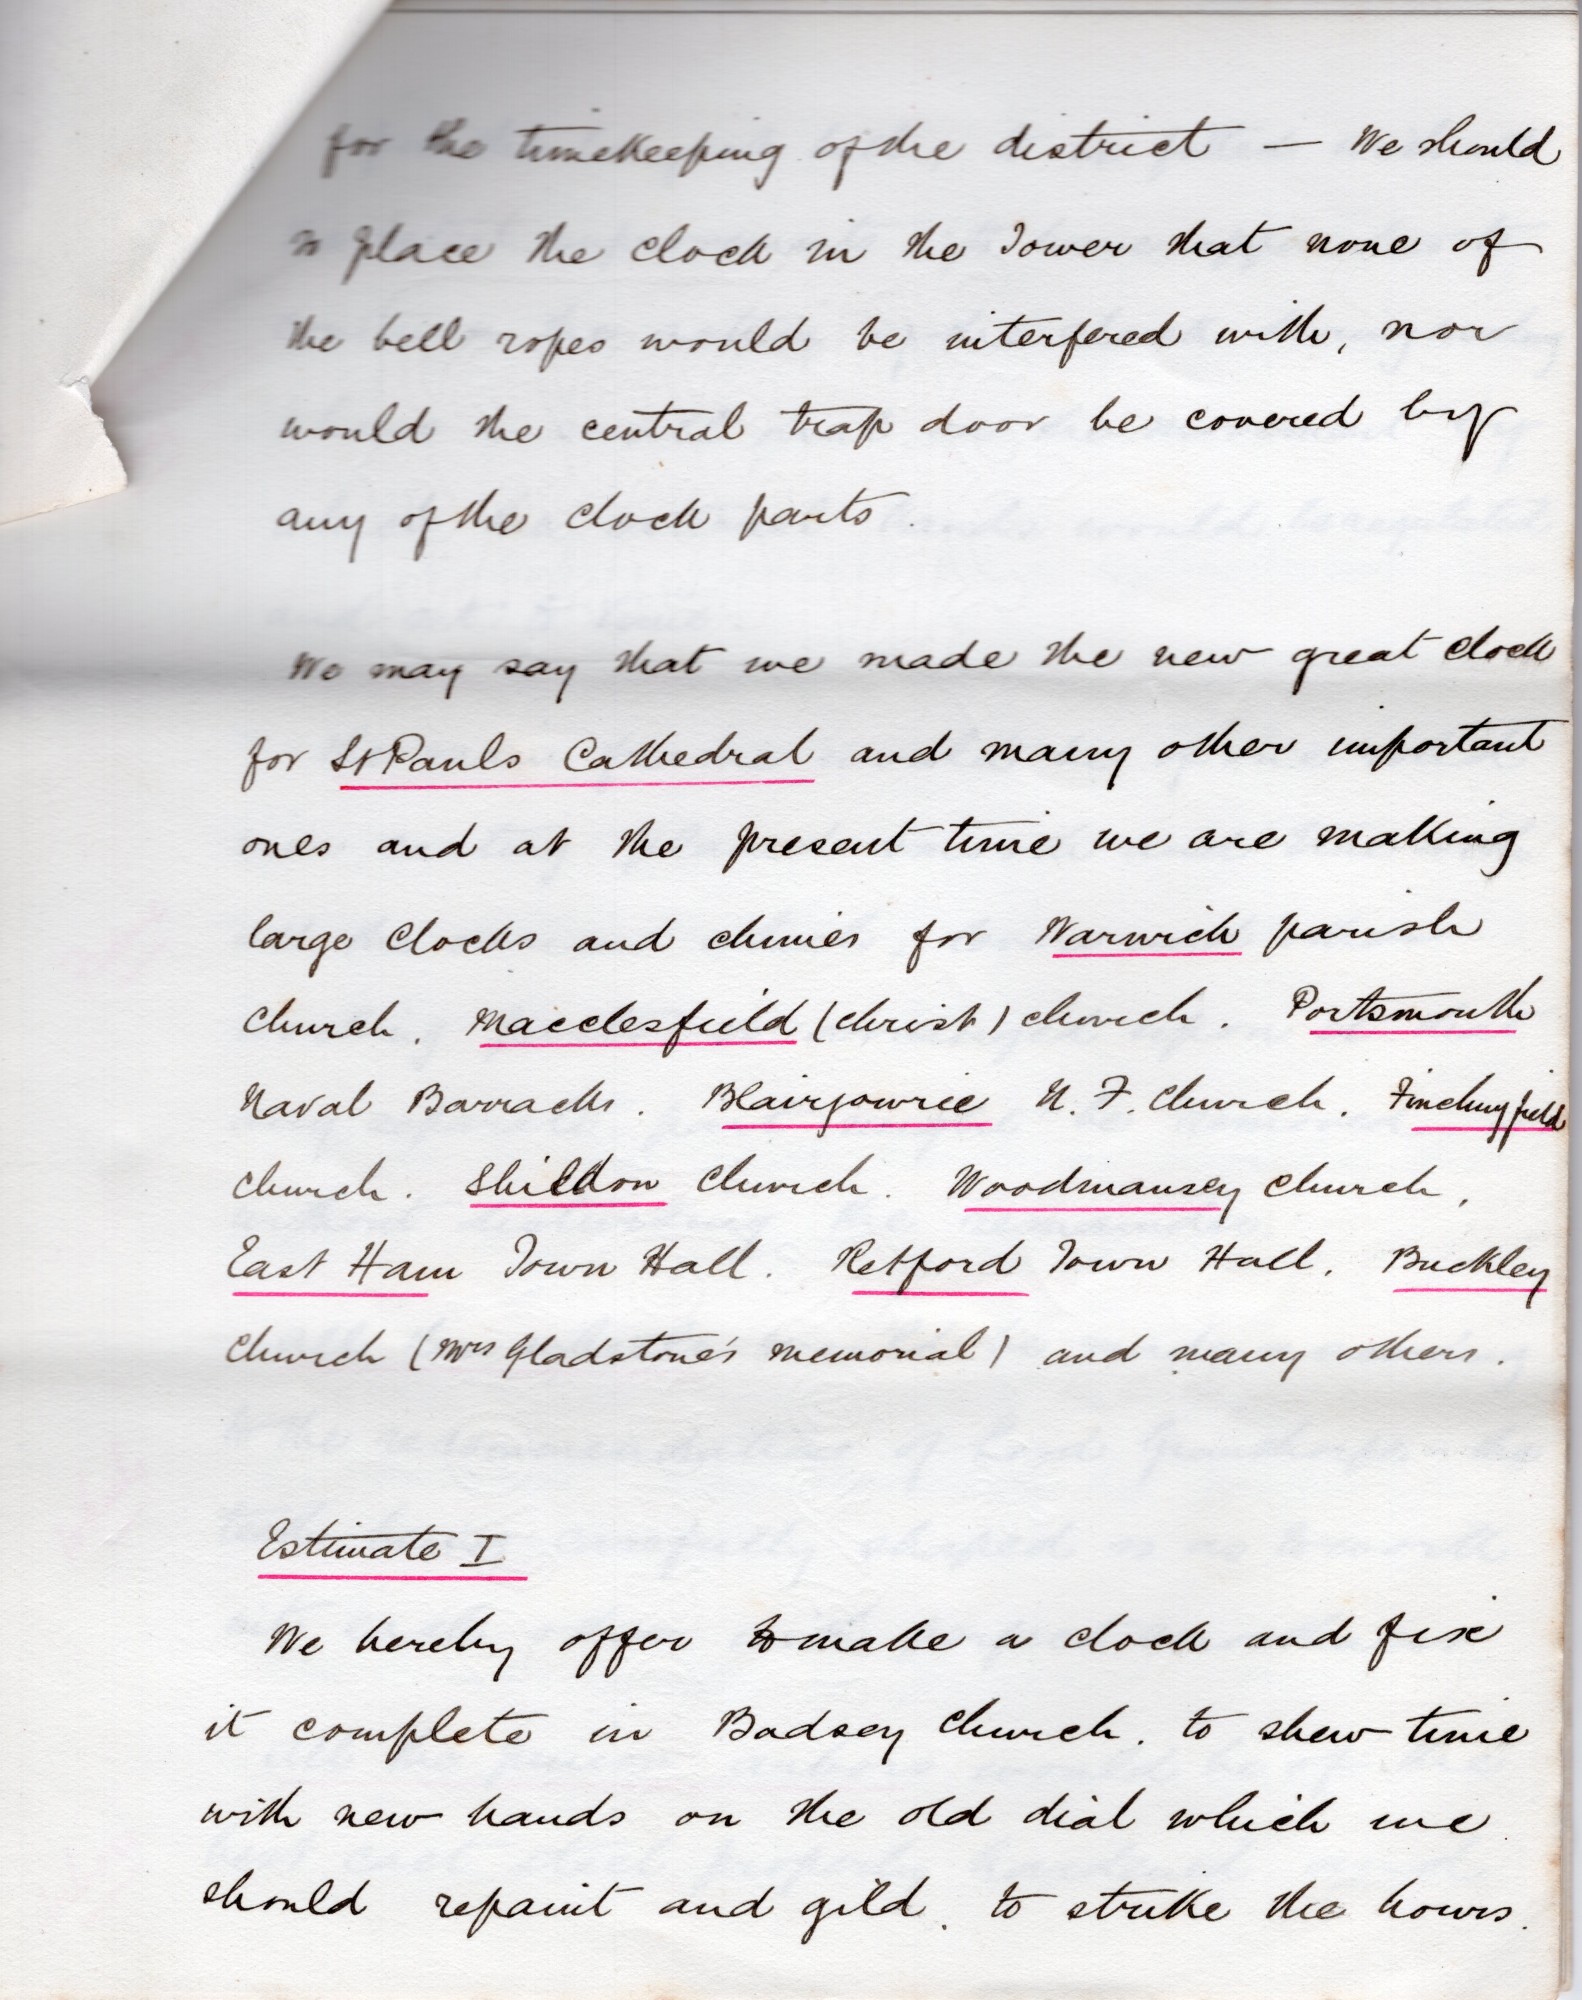 for the timekeeping of the district — We should
so place the clock in the Tower that none of
the bell ropes would be interfered with, nor
would the central trap door be covered by
any of the clock parts.
We may say that we made the new great clock
for St Pauls Cathedral and many other important
ones and at the present time we are making
large clocks and chimes for Warwick parish
church. Macclesfield (Christ) church. Portsmouth
Naval Barracks. Blairgowrie U. F. Church. Finchingfield
church. Shildon Church. Woodmansey Church,
East Ham Town Hall. Retford Town Hall. Buckley
Church (Mrs Gladstone's memorial) and many others.
Estimate I
We hereby offer to make a clock and fix
it complete in Badsey Church. to shew time
with new hands on the old dial which we
should repaint and gild. to strike the hours.